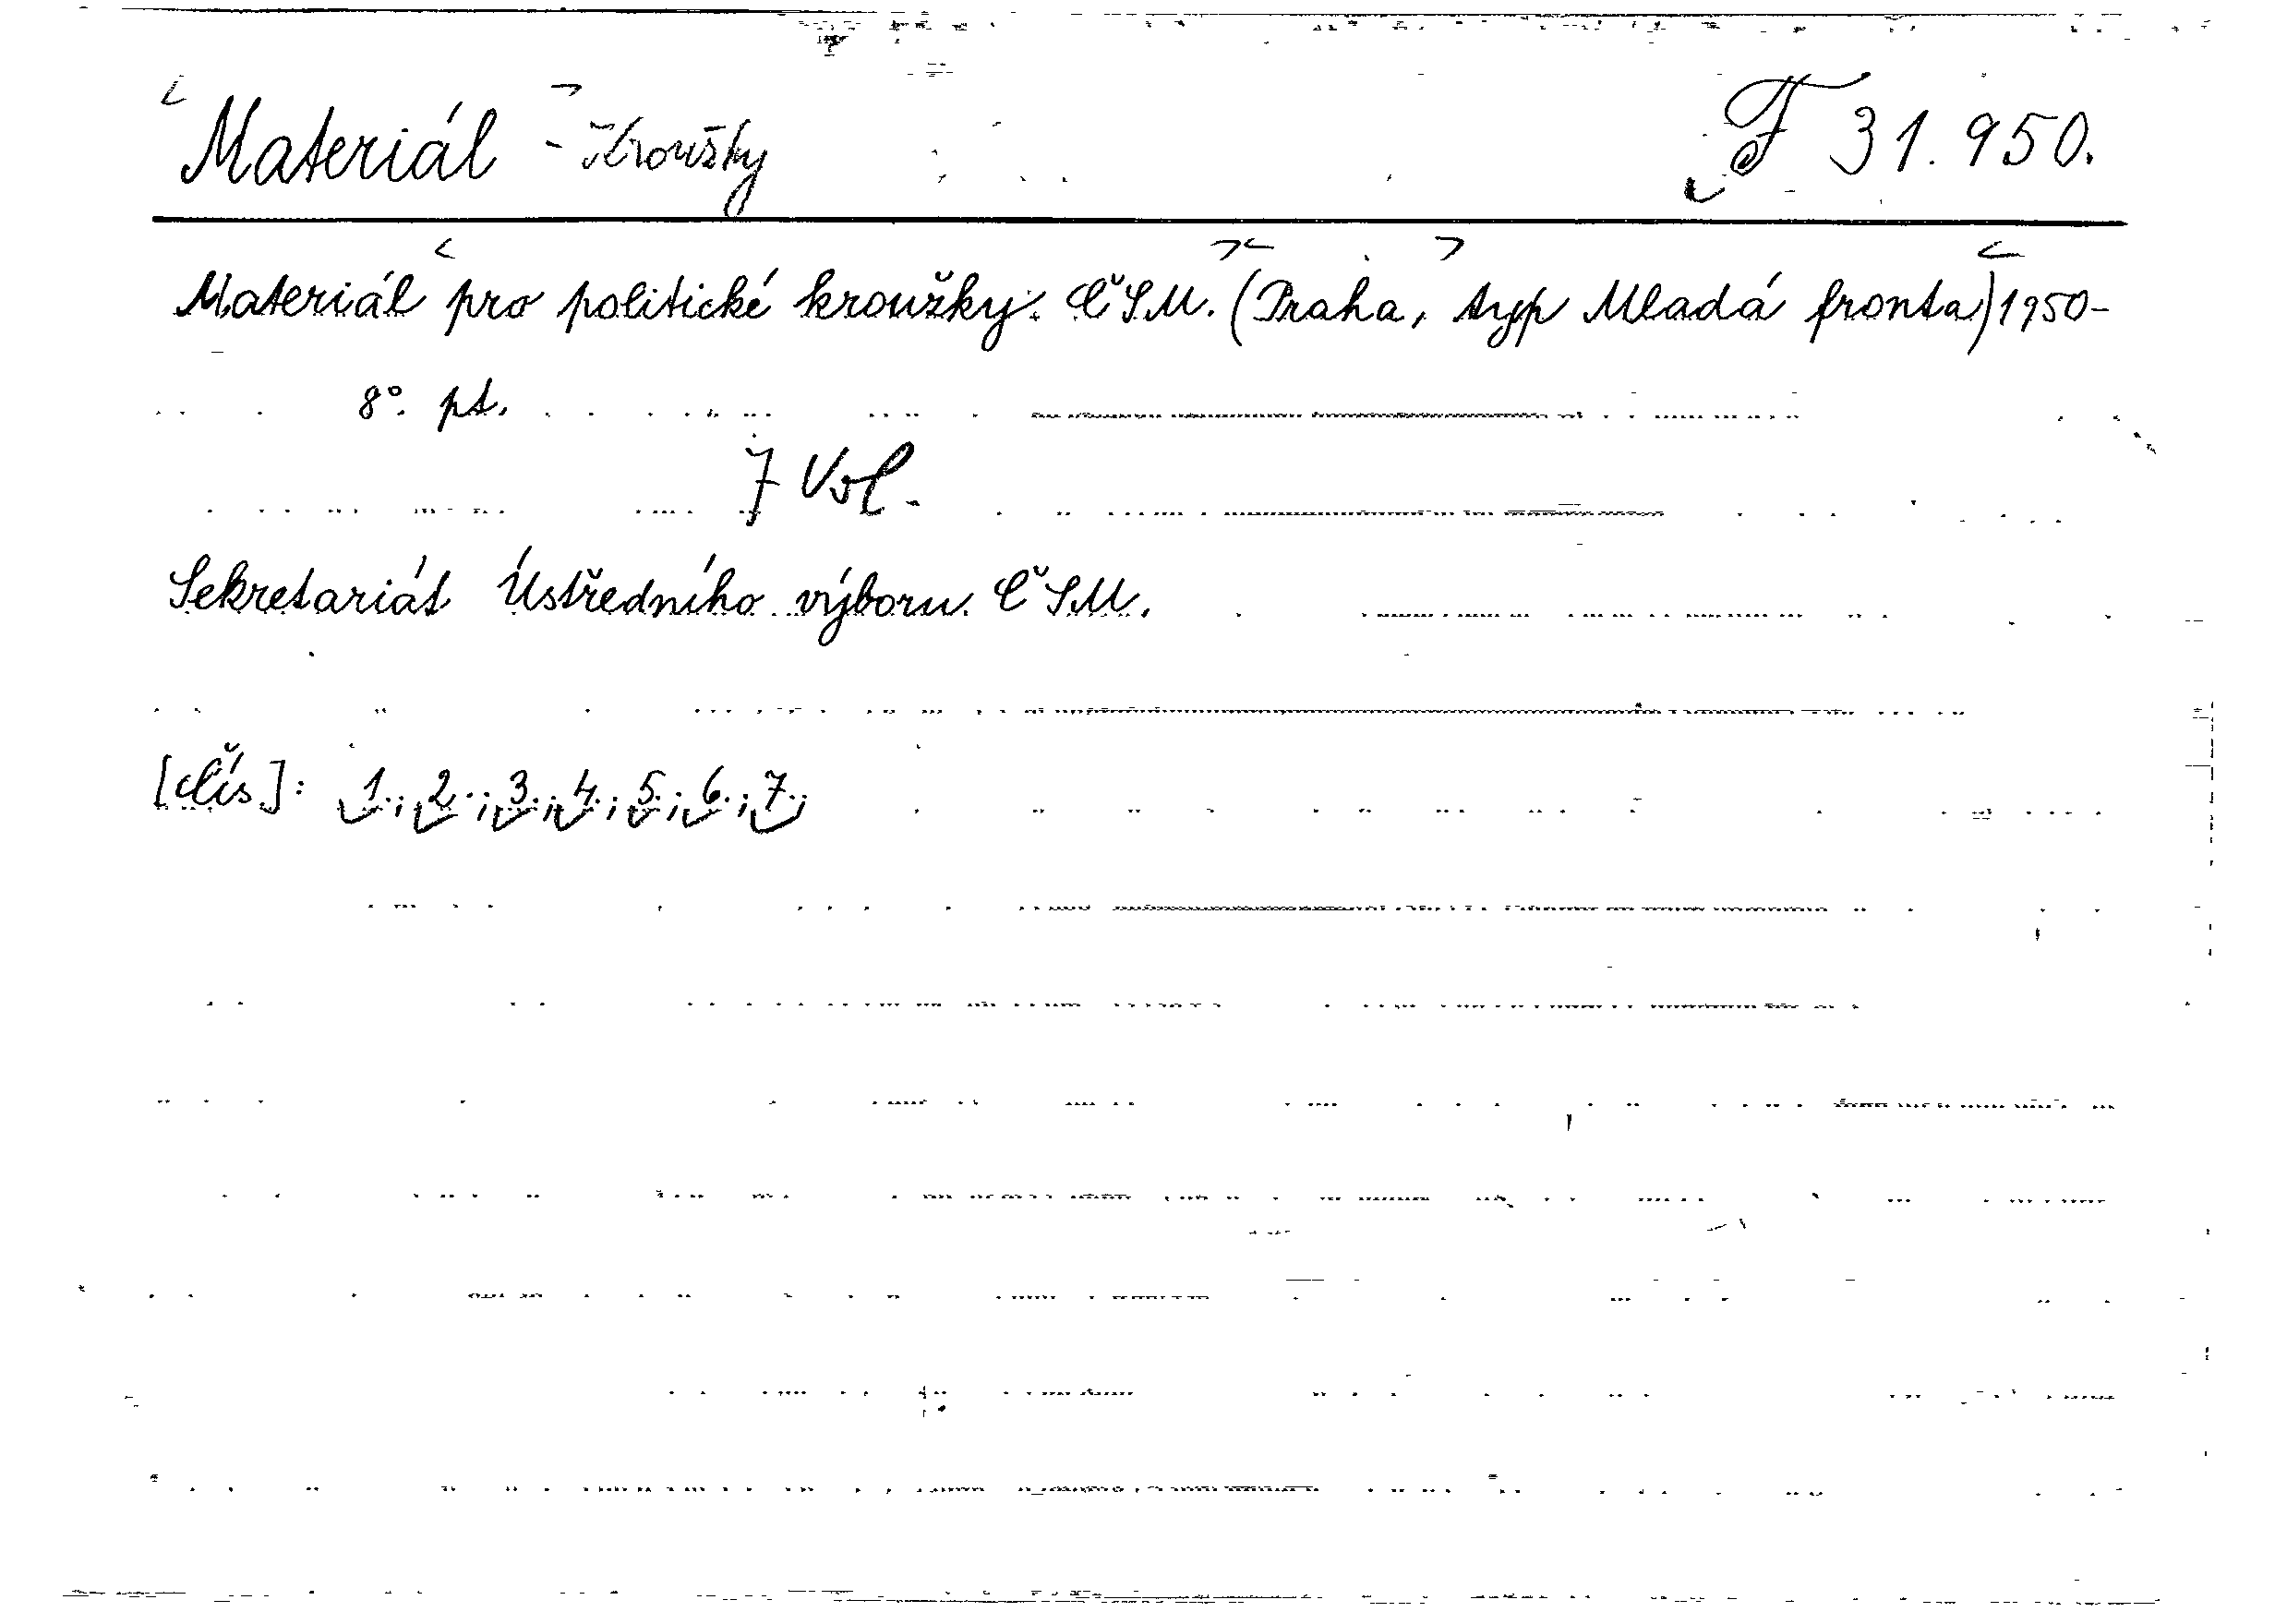 Materiál - Kroužky F 31.950.
Materiál pro politické kroužky. ČSM. (Praha, typ Mladá fronta) 1950-
8°. pt.
7 Vol.
Sekretariát Ústředního výboru ČSM.
[čís]: 1.; 2.; 3.; 4.; 5.; 6.; 7.;